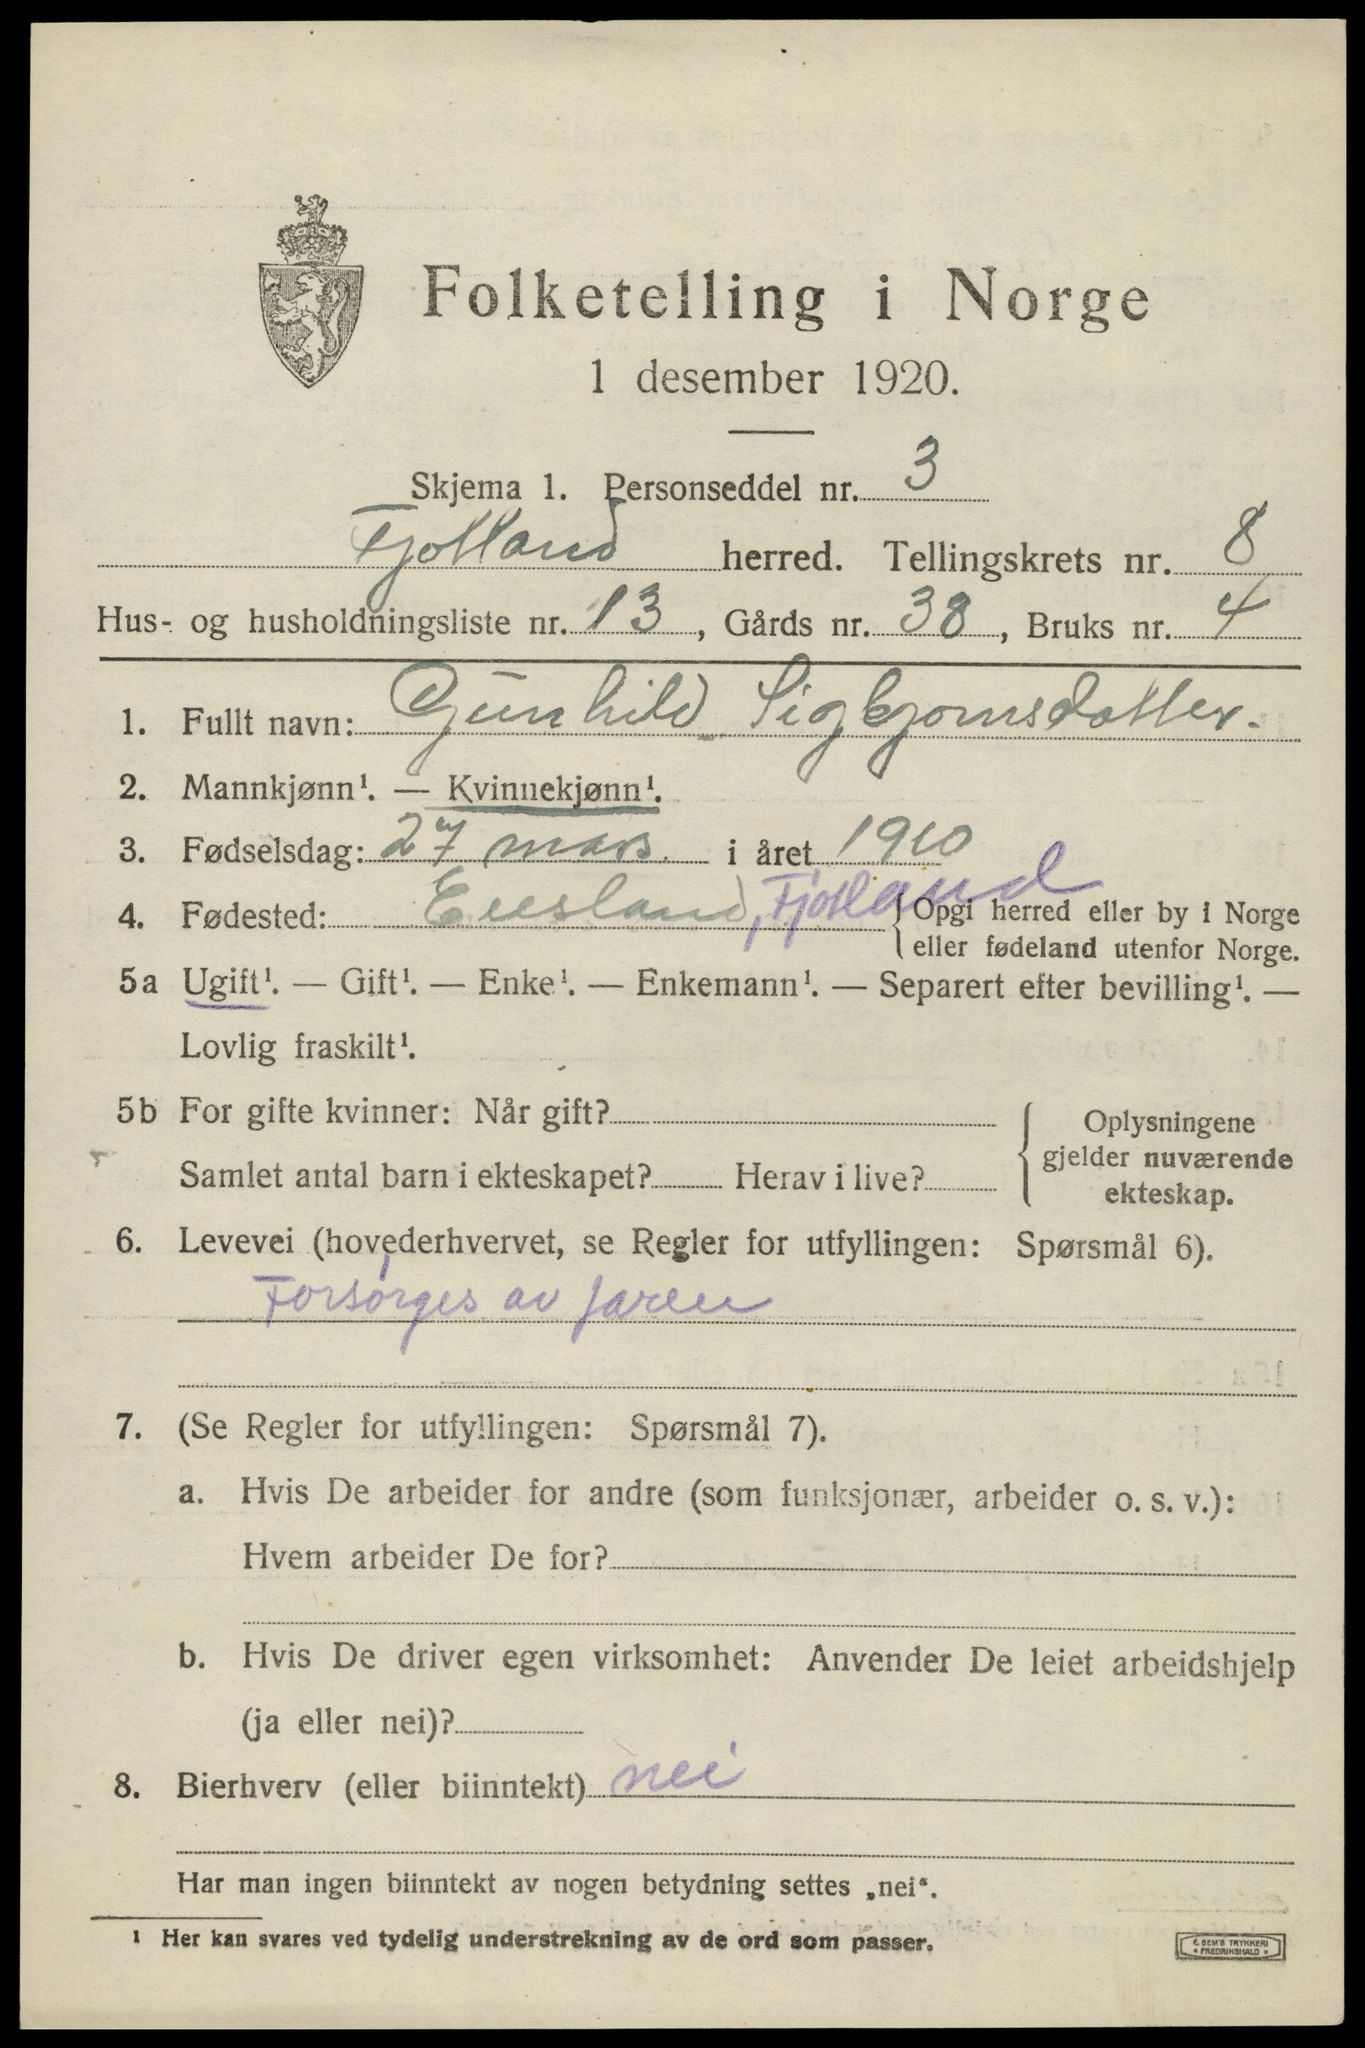 Folketelling i Norge
1 desember 1920.
Skjema 1. Personseddel nr. 3
Fjotland herred. Tellingskrets nr. 8
Hus- og husholdningsliste nr. 13, Gårds nr. 38, Bruks nr. 4
1. Fullt navn: Gunhild Sigbjornsdatter.
2. Mannkjønn¹. — Kvinnekjønn¹.
3. Fødselsdag: 27 mars. i året 1910
4. Fødested: Eiesland, Fjotland { Opgi herred eller by i Norge
eller fødeland utenfor Norge.
5a Ugift¹. — Gift¹. — Enke¹. — Enkemann¹. — Separert efter bevilling¹. —
Lovlig fraskilt¹.
5b For gifte kvinner: Når gift?
Samlet antal barn i ekteskapet? Herav i live?
{ Oplysningene
gjelder nuværende
ekteskap.
6. Levevei (hovederhvervet, se Regler for utfyllingen: Spørsmål 6).
Forsørges av faren
7. (Se Regler for utfyllingen: Spørsmål 7).
a. Hvis De arbeider for andre (som funksjonær, arbeider o. s. v.):
Hvem arbeider De for?
b. Hvis De driver egen virksomhet: Anvender De leiet arbeidshjelp
(ja eller nei)?
8. Bierhverv (eller biinntekt) nei
Har man ingen biinntekt av nogen betydning settes „nei“.
¹ Her kan svares ved tydelig understrekning av de ord som passer.
E. SEM'S TRYKKERI
FREDRIKSHALD